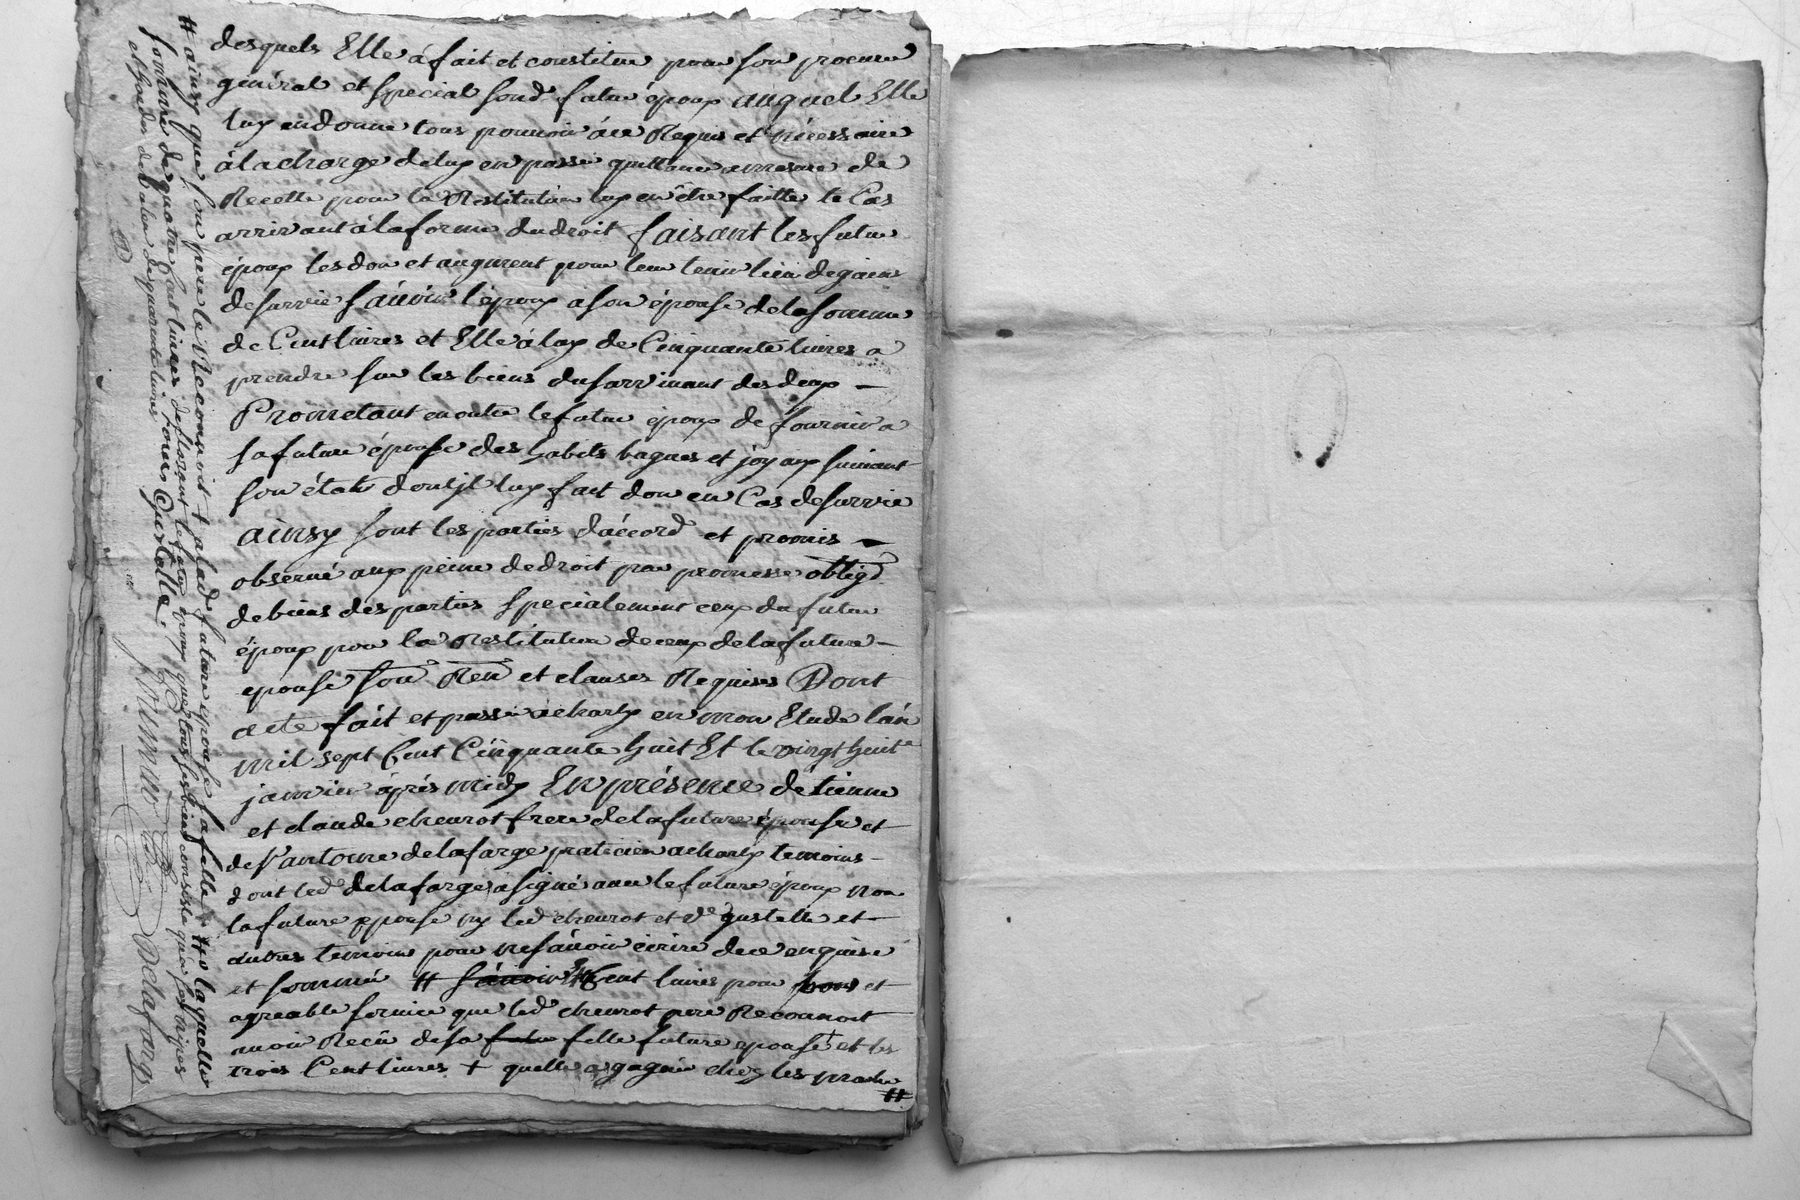 desquels Elle à fait et constitue pour son procureur
général et special sond. futur époux auquel Elle
luy en donne tous pouvoir à ce Requis et nécessaire
à la charge de luy en passer quittance a mesure de
Recette pour la Restitution luy en être faitte le Cas
arrivant à la forme du droit faisant les futurs
époux les don et augment pour leur tenir lieu de gain
de survie sávoir l'époux à son épouse de la somme
de Cent livres et Elle à luy de Cinquante livres a
prendre sur les biens du survivant des deux –
Prometant en outre le futur époux de fournir a
sa future épouse des habits bagues et joyaux suivant
son état dousjl luy fait don en Cas de survie
ainsy sont les parties d'áccord et promis –
observé aux peine de droit par promesse oblig.
de biens des parties specialement ceux du futur
époux pour la Restitution de ceux de la future –
epouse soū Reñ et clauses Requises Dont
acte fait et passé à charly en mon Etude l'an
mil sept Cent Cinquante huit Et le vingt huit.e
janvier áprés midy En présence détienne
et claude chevrot frere de la future épouse et
de sr. antoine delafarge praticien a charly temoins –
dont led. delafarge à signé avec le future époux non
la future epouse ny led chevrot et de gustelle et –
autres temoins pour ne sávoir écrire de ce enquise
et sommé # sávoir Cent livres pour bons et
agreable service que led. chevrot pere Reconnoit
avoir Recû de sa futur fille future epouse et les
trois Cent livres + quelle a gagnée chez les
#
# ainsy que son pere le Reconnoit + a lad. future épouse sa fille # laquelle
somme de quatre Cent livres
et hardes de la valeur de quarante livres
Delafarge